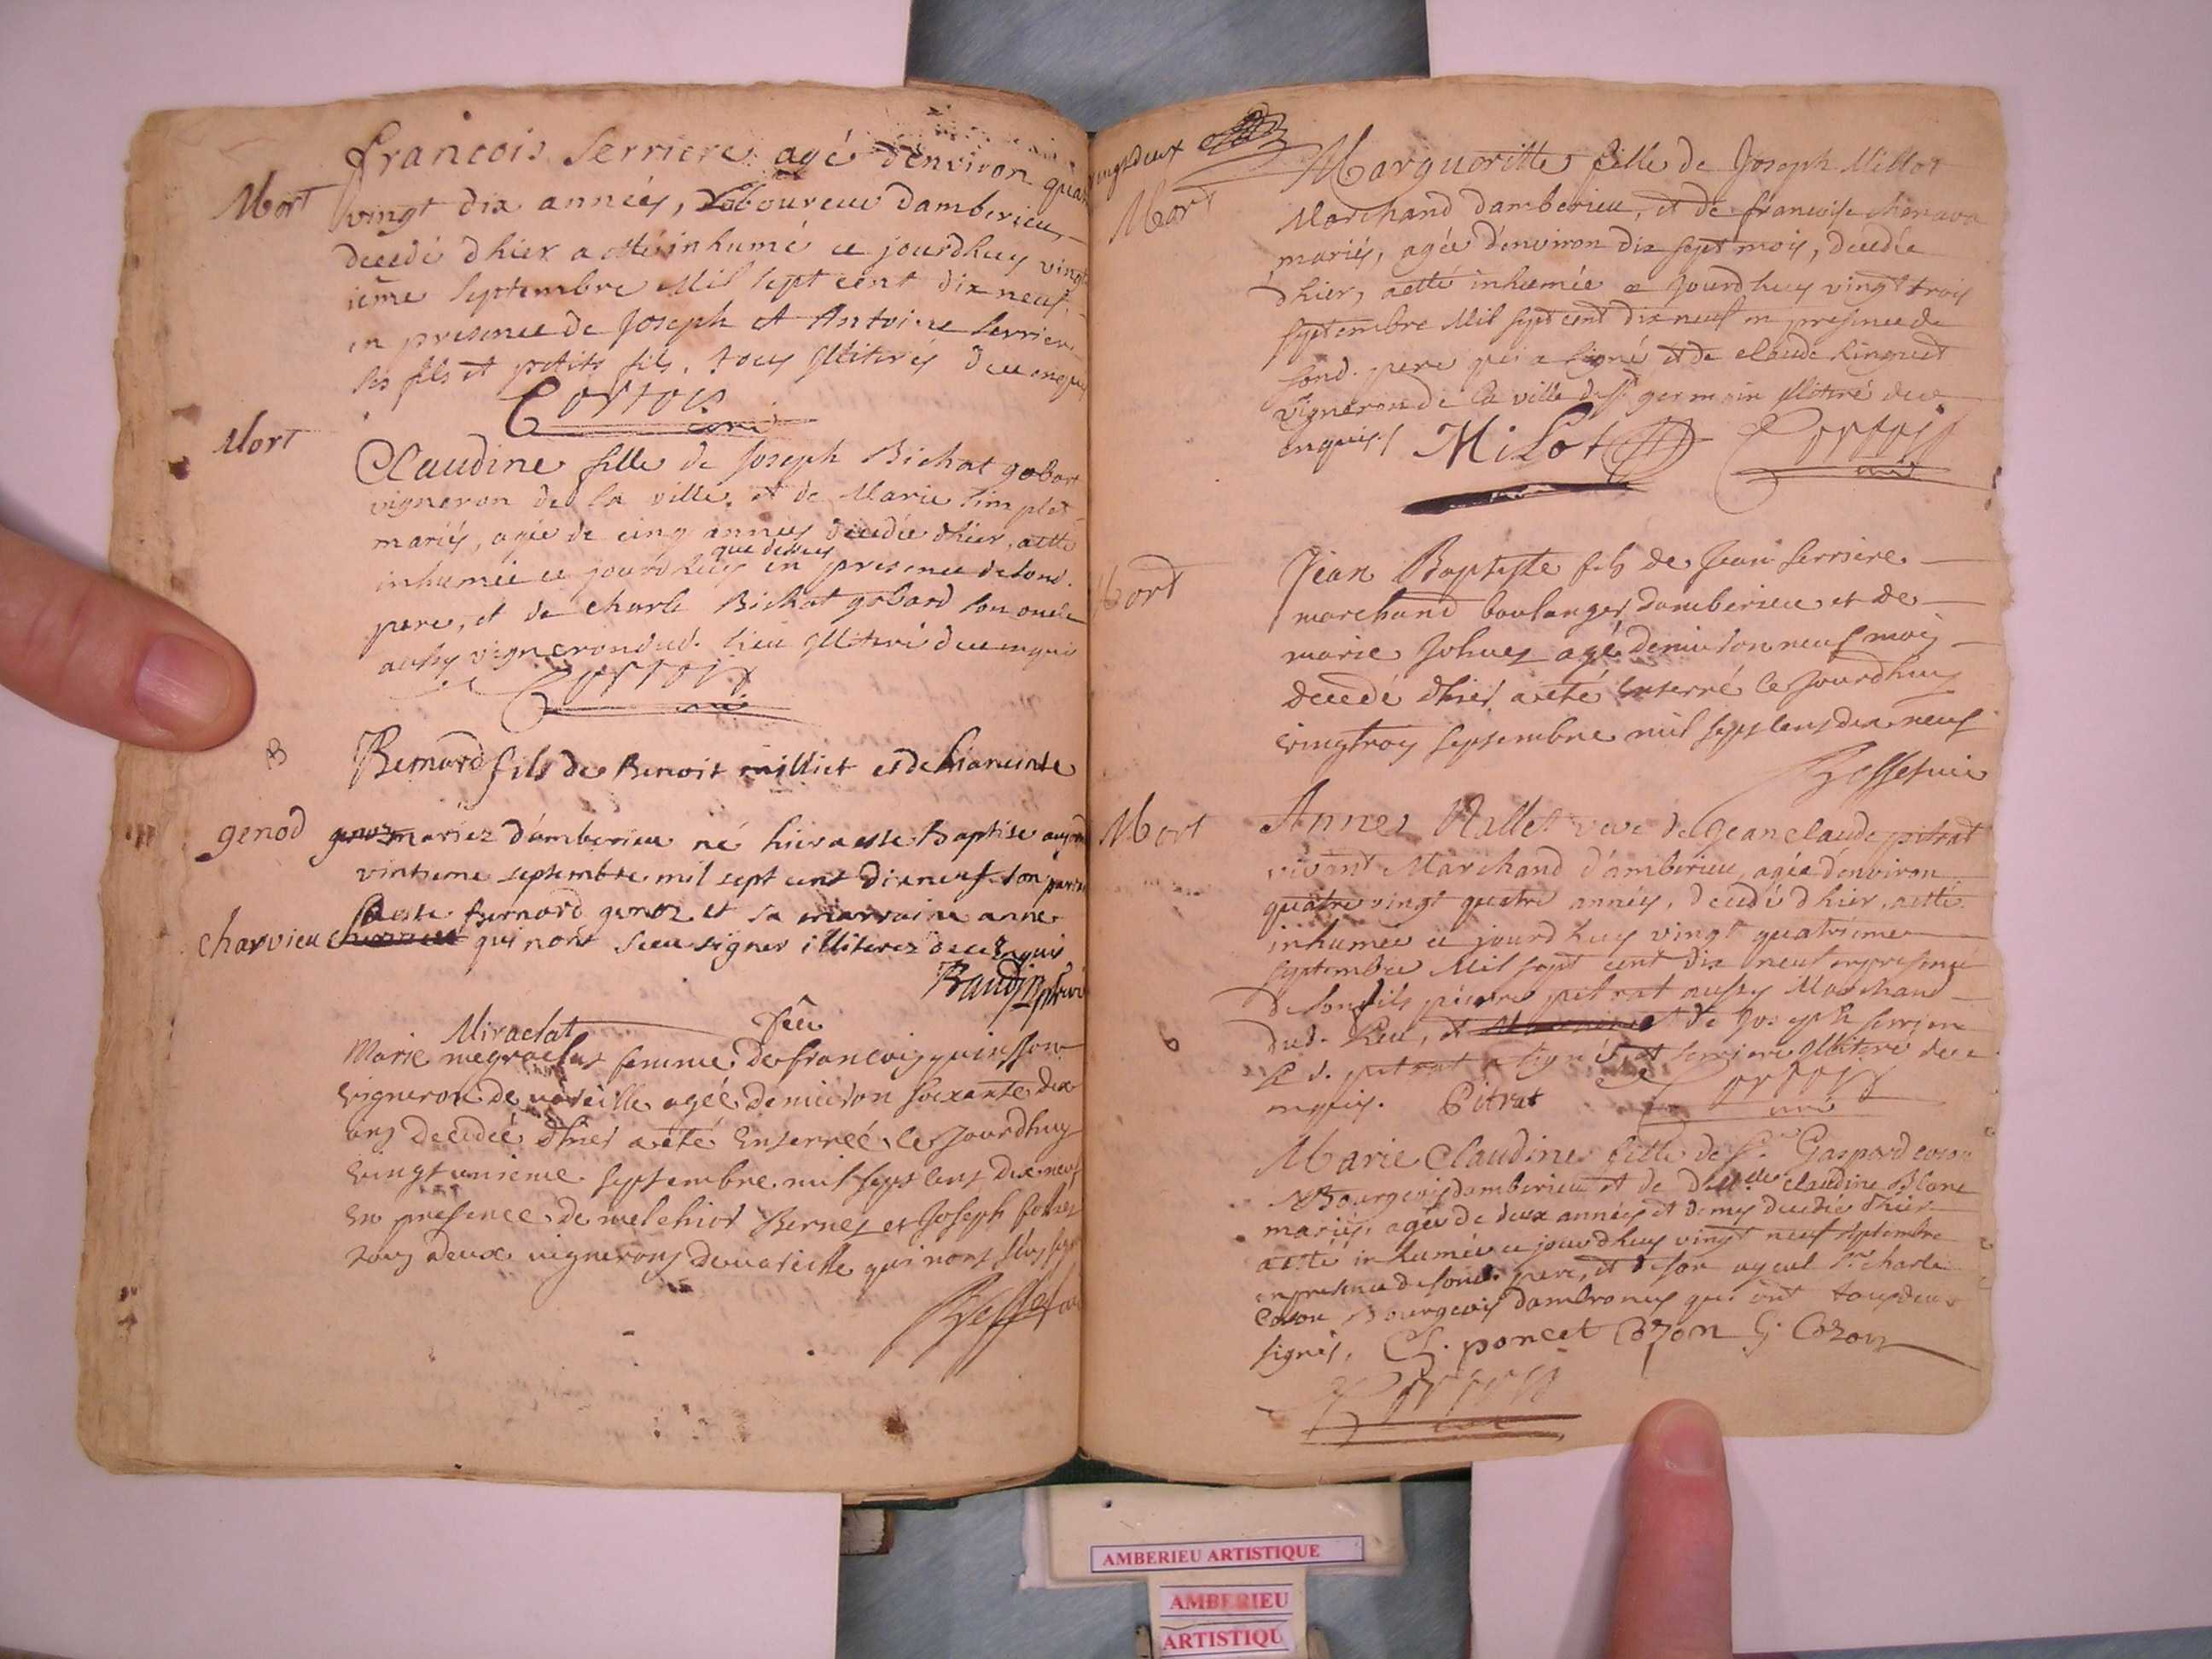 Mort
francois Serriere agé denviron quatre
vingt dix années, Laboureur damberieu,
decedé dhier a esté inhumé ce jourdhuy vingt
ieme Septembre Mil sept cent dix neuf,
en presence de Joseph et Antoine Serriere
ses fils et petits fils, tous illiterés deu enquis
Cortois
curé
Mort
Claudine fille de Joseph Bichat gobar
vigneron de la ville, et de Marie Simplet
mariés, agée de cinq années decedée dhier, a esté
que dessus
inhumée ce jourdhuy en presence de sond.
pere, et de Charle Bichat gobard son oncle
aussy vigneron dud. lieu illiteré deu enquis
Cortois
curé
B
Bernard fils de Benoit milliet et de hiacinte
genod genoz mariez damberieu né hier a este Baptise aujour
vintieme septembre mil sept cens dixneuf son parin
a este bernard genoz et sa marraine anne
charvieu qui nont sceu signer illiterez deu enquis
Baudin
Miraclat
feu
Marie megraclat femme de francois quinsson
vigneron de vareille agée denviron soixante dix
ans decedée dhier a été enterrée le jourdhuy
vingt unieme septembre mil sept cens dix neuf
en presence de melchiot Bernes et Joseph
tous deux vignerons de vareille qui nont
Bessefuie
vingt deux
Mort
Marguerite fille de Joseph Millot
Marchand damberieu, et de francoise
mariés, agée denviron dix sept mois, decedée
dhier, a esté inhumée ce jourdhuy vingt trois
septembre Mil sept cent dix neuf en presence de
sond. pere qui a signé et de claude Ringuet
vigneron de la ville de St germain illiteré deu
enquis. Milot Cortois
curé
Mort
Jean Baptiste fils de Jean Serriere
marchand boulanger damberieu et de
marie Johues agé denviron neuf mois
decedé dhier a été enterré le jourdhuy
vingtroy septembre mil sept cens dix neuf
Bessefuie
Mort
Anne Vallet veve de Jean claude pitrat
vivant Marchand damberieu, agée denviron
quatre vingt quatre années, decedé dhier, a esté
inhumée ce jourdhuy vingt quatrieme
septembre Mil sept cent dix neuf en presence
de son fils pierre pitrat aussy Marchand
dud. lieu, et de Joseph Serriere
le d. pitrat a signé, et Serriere illiteré deu e
nquis. Pitrat Cortois
curé
Marie Claudine fille de Sr. Gaspard cozon
Bourgeois damberieu et de Dlle claudine Blanc
mariés, agée de deux années et demy decedée dhier
a esté inhumée ce jourdhuy vingt neuf septembre
en presence de sond. pere, et de son ayeul Sr charle
Cozon Bourgeois dambronay qui ont tous deux
signés, Ch. poncet Cozon G. Cozon
Cortois
curé
AMBERIEU ARTISTIQUE
AMBERIEU
ARTISTIQU